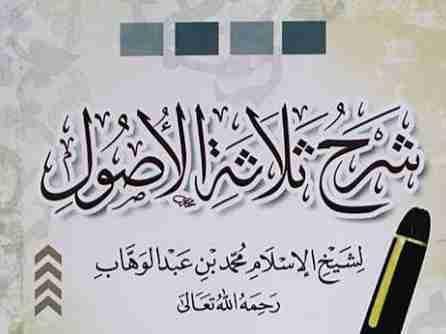 شَرْحُ ثَلَاثَةِ الْأُصُولِ
لِشَيْخِ الإِسْلَامِ مُحَمَّد بْنِ عَبْدِ الوَهَّابِ
رَحِمَهُ اللهُ تَعَالَى